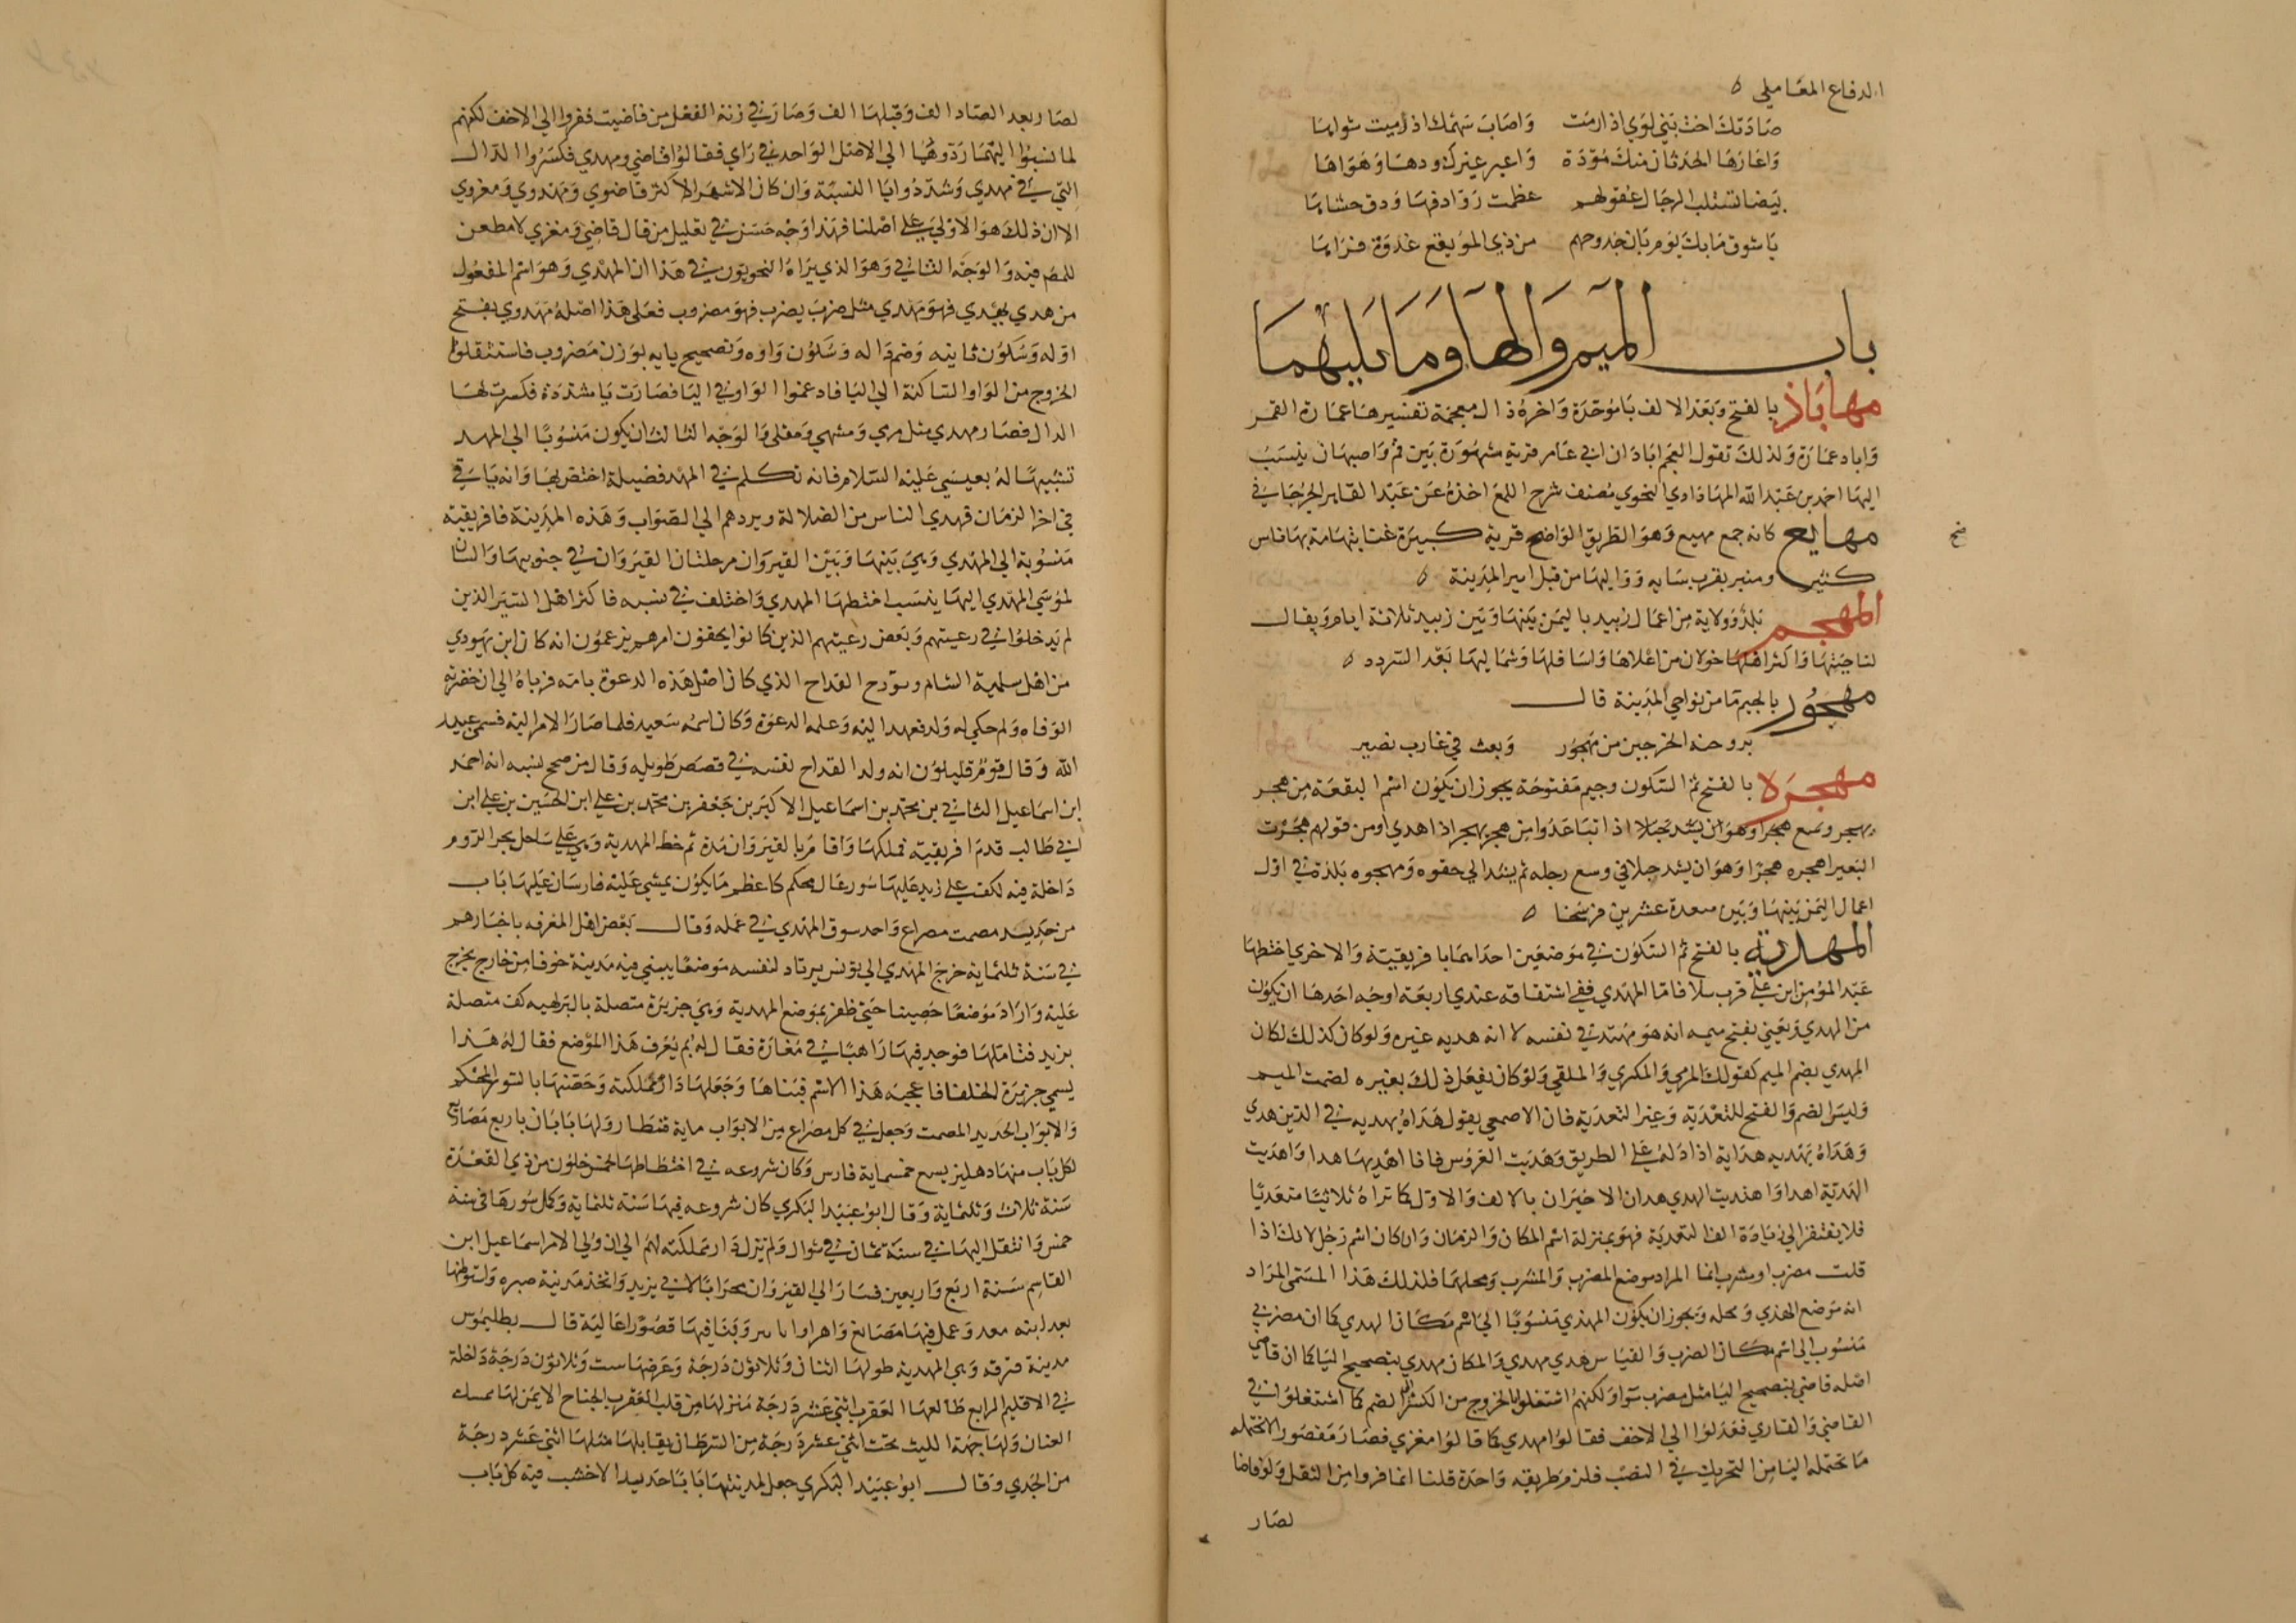 الدفاع العاملي ه
صادتك اخت بني لوي اذ رمت واصاب سهمك اذ رميت سواها
واعارها الحدثان منك مودة واعير غيرك ودها وهواها
بيضا تستلب الرجال عقولهم عظمت روادفها ودق حشاها
يا شوق ما بك يوم بان حدوجهم من ذي المويقع غدوة فراها
باب الميم والها وما يليهما
مهاباذ بالفتح وبعد الالف با موحدة واخره ذال معجمة تفسيرها عمارة القمر
واباد عمارة ولذلك تقول العجم اباذان اي عامر قرية مشهورة بين قم واصبهان ينسب
اليها احمد بن عبد الله المهاباذي النحوي مصنف شرح اللمع اخذه عن عبد القاهر الجرجاني
مهايع كانه جمع مهيع وهو الطريق الواضح قرية كبيرة غنا بتهامة بها ناس
كثير ومنبر بقرب سايه وواليها من قبل امير المدينة ه
المهجم بلد وولاية من اعمال زبيد باليمن بينها وبين زبيد ثلاثة ايام ويقال
لناحيتها واكثر اهلها خولان من اعلاها واسافلها وشماليها بعد السردد ه
مهجور بالجيم ما من نواحي المدينة قال
بروحنه الخرجين من مهجور وبعث في غارب نضير
مهجرة بالفتح ثم السكون وجيم مفتوحة يجوز ان يكون اسم البقعة من هجر
يهجر هجرا وهو ان اذا تباعدوا من هجر يهجر اذا هدي او من قولهم هجرت
البعير اهجره هجرا وهو ان يشد حبلا في وسع رجله ثم يشد الي حقوه ومهجره بلدة في اول
اعمال اليمن بينها وبين صعدة عشرين فرسخا ه
المهدية بالفتح ثم السكون في موضعين احداهما بافريقية والاخري اختطها
عبد المؤمن ابن علي قرب سلا فاما المهدي ففي اشتقاقه عندي اربعة اوجه احدها ان يكون
من الهدي ويعني بفتح ميمه انه هو مهتد في نفسه لا انه هديه غيره ولو كان كذلك لكان
المهدي بضم الميم كقولك المرمي والمكري والملقي ولو كان يفعل ذلك بغيره لضمت الميم
وليس الضم والفتح للتعدية وغير التعدية فان الاصمعي يقول هداه يهديه في الدين هدي
وهداه يهديه هداية اذا دله علي الطريق وهديت العروس فانا اهديها هدا واهديت
الهدية اهدا واهديت الهدي هدان الاخيران بالالف والاول كما تراه ثلاثيا متعديا
فلا يفتقر الي زيادة الف التعدية فهو بمنزلة اسم المكان والزمان وان كان اسم رجل لانك اذا
قلت مضرب او مشرب انما المراد موضع المضرب والمشرب ومحلهما فلذلك هذا المسمي المراد
انه موضع الهدي ومحله ويجوز ان يكون المهدي منسوبا الي اسم مكان الهدي كما ان مضربي
منسوب الي اسم مكان الضرب والقياس هدي مهدي والمكان مهدي بتصحيح اليا كما ان قاضي
اصله قاضي بتصحيح اليا مثل مضرب سوا ولكنهم استثقلوا الخروج من الكسر الي الضم كما استثقلوا في
القاضي والقاري فعدلوا الي الاخف فقالوا مهدي كما قالوا مغزي فصار مقصورا لا تحتمله
ما تحتمله اليا من التحريك في النصب فلزم طريقه واحدة قلنا انما فروا من الثقل ولو قاضا
لصار
لصار بعد الصاد الف وقبلها الف وصار في زنة الفعل من قاضيت ففروا الي الاخف لكنهم
لما نسبوا اليهما ردوهما الي الاصل الواحد في راي فقالوا قاضي ومهدي فكسروا الدال
التي في مهدي وشددوا يا النسبة وان كان الاشهر الاكثر قاضوي ومهدوي ومغزوي
الا ان ذلك هو الاولي علي اصلنا فهذا وجه حسن في تعليل من قال قاضي ومغزي لا مطعن
للمصر فيه والوجه الثاني وهو الذي يراه النحويون في هذا ان المهدي وهو اسم المفعول
من هدي يهدي فهو مهدي مثل ضرب يضرب فهو مضروب فعلي هذا اصله مهدوي بفتح
اوله وسكون ثانيه وضم داله وسكون واوه وتصحيح يايه بوزن مضروب فاستثقلوا
الخروج من الواو الساكنة الي اليا فادغموا الواو في اليا فصارت يا مشددة فكسرت لها
الدال فصار مهدي مثل مرمي ومشهي ومقلي والوجه الثالث ان يكون منسوبا الي المهد
تشبيها له بعيسي عليه السلام فانه تكلم في المهد فضيلة اختص بها وانه ياتي
في اخر الزمان فهدي الناس من الضلالة ويردهم الي الصواب وهذه المدينة فافريقية
منسوبة الي المهدي وهي بينها وبين القيروان مرحلتان القيروان في جنوبيها
المهدي اليها ينسب اختطها المهدي واختلف في نسبه فاكثر اهل السير الذين
لم يدخلوا في رعيتهم وبعض رعيتهم الذين كانوا يخفون امرهم يزعمون انه كان ابن يهودي
من اهل سلمية الشام وتزوج القداح الذي كان اصل هذه الدعوة بامه فرباه الي ان حضرته
الوفاه ولم يكن له ولد فعهد اليه وعلمه الدعوة وكان اسمه سعيد فلما صار الامر اليه فسمي عبيد
الله وقال قوم قليلون انه ولد القداح نفسه في قصص طويله وقال من صحح نسبه انه احمد
ابن اسماعيل الثاني بن محمد بن اسماعيل الاكبر بن جعفر بن محمد بن علي ابن الحسين بن علي ابن
ابي طالب قدم افريقية فملكها واقام بالقيروان مدة ثم خط المهدية وهي علي ساحل بحر الروم
داخلة فيه لكف علي زند عليها سور عال محكم كاعظم ما يكون يمشي عليه فارسان عليها باب
من حديد مصمت مصراع واحد سوق المهدي في عمله وقال بعض اهل المعرفه باخبارهم
في سنة ثلثماية خرج المهدي الي تونس يرتاد لنفسه موضعا يبني فيه مدينة خوفا من خارج يخرج
عليه واراد موضعا حصينا حتي ظفر بموضع المهدية وهي جزيرة متصلة بالبر لهيه كف متصلة
بزند فتاملها فوجد فيها راهبا في مغارة فقال له بم يعرف هذا الموضع فقال له هذا
يسمي جزيرة الخلفا فاعجبه هذا الاسم فبناها وجعلها دار مملكته وحصنها بالسور المحكم
والابواب الحديد المصمت وجعل في كل مصراع من الابواب ماية قنطار ولها بابان باربع مصاريع
لكل باب منها دهليز يسع خمسماية فارس وكان شروعه في اختطاطها لخمس خلون من ذي القعدة
سنة ثلاث وثلثماية وقال ابو عبيد البكري كان شروعه فيها سنة ثلثماية وكمل سورها في سنة
خمس وانتقل اليها في سنة ثمان في شوال ولم تزل دار مملكته لهم الي ان ولي الامر اسماعيل ابن
القاسم سنة اربع واربعين فسار الي القيروان محرابا لابي يزيد واتخذ مدينة صبره واستوطنها
بعد ابنه معد وعمل فيها مصانع واهراوا وبنا فيها قصورا عالية قال بطليموس
مدينة فرقه وهي المهدية طولها اثنان وثلاثون درجة وعرضها ست وثلاثون درجة داخلة
في الاقليم الرابع طالعها العقرب اثني عشر درجة منزلها من قلب العقرب الجناح الايمن لها ممسك
العنان ولها جبهة الليث تحت اثني عشر درجة من السرطان يقابلها مثلها اثني عشر درجة
من الجدي وقال ابو عبيد البكري جعل لمدينتها بابا حديد الا خشب فيه كل باب